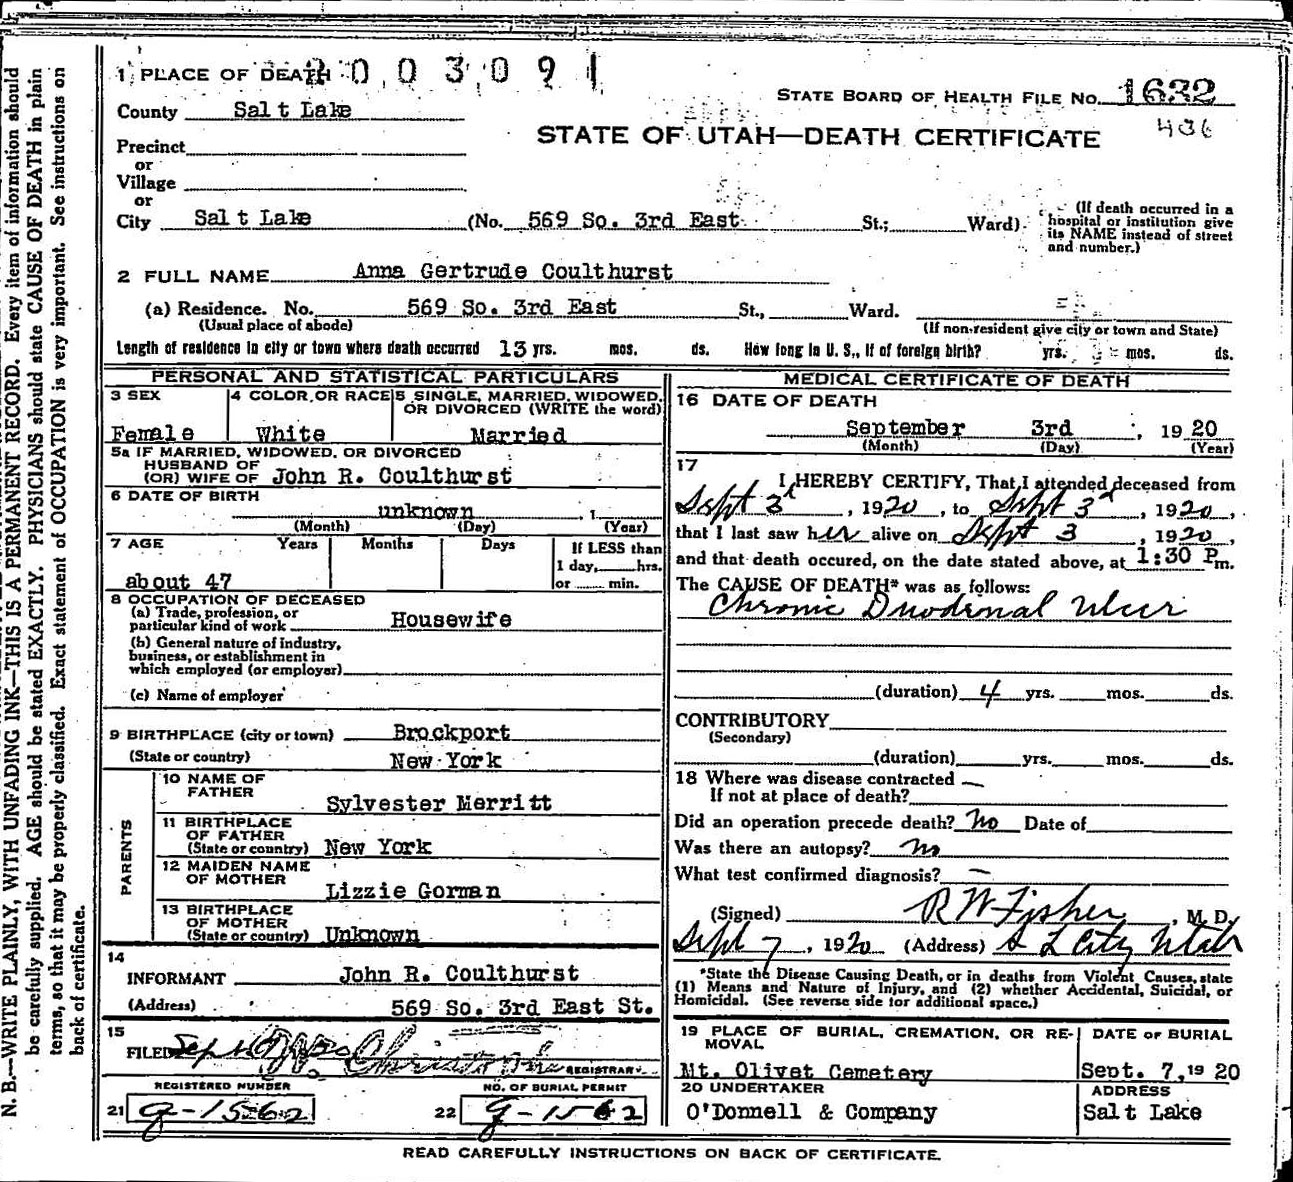 1 PLACE OF DEATH 200309
STATE BOARD OF HEALTH FILE NO. 1632
County Salt Lake
436
STATE OF UTAH—DEATH CERTIFICATE
Precinct
or
Village
or
City Salt Lake (No. 569 So. 3rd East St.; Ward)
(If death occurred in a
hospital or institution give
its NAME instead of street
and number.)
2 FULL NAME Anna Gertrude Coulthurst
(a) Residence. No. 569 So. 3rd East St., Ward.
(Usual place of abode) (If non-resident give city or town and State)
Length of residence in city or town where death occurred 13 yrs. mos. ds. How long in U. S., if of foreign birth? yrs. mos. ds.
PERSONAL AND STATISTICAL PARTICULARS
3 SEX 4 COLOR OR RACE 5 SINGLE, MARRIED, WIDOWED,
OR DIVORCED (WRITE the word)
Female White Married
5a IF MARRIED, WIDOWED, OR DIVORCED
HUSBAND OF
(OR) WIFE OF John R. Coulthurst
6 DATE OF BIRTH
unknown , 1
(Month) (Day) (Year)
7 AGE Years Months Days If LESS than
1 day, hrs.
about 47 or min.
8 OCCUPATION OF DECEASED
(a) Trade, profession, or
particular kind of work Housewife
(b) General nature of industry,
business, or establishment in
which employed (or employer)
(c) Name of employer
9 BIRTHPLACE (city or town) Brockport
(State or country) New York
PARENTS
10 NAME OF
FATHER
Sylvester Merritt
11 BIRTHPLACE
OF FATHER
(State or country) New York
12 MAIDEN NAME
OF MOTHER
Lizzie Gorman
13 BIRTHPLACE
OF MOTHER
(State or country) Unknown
14
INFORMANT John R. Coulthurst
(Address) 569 So. 3rd East St.
15
FILED Sept REGISTRAR
REGISTERED NUMBER NO. OF BURIAL PERMIT
21 9-1562 22 9-1562
MEDICAL CERTIFICATE OF DEATH
16 DATE OF DEATH
September 3rd , 1920
(Month) (Day) (Year)
17
I HEREBY CERTIFY, That I attended deceased from
Sept 3d , 1920 , to Sept 3d , 1920 ,
that I last saw her alive on Sept 3 , 1920 ,
and that death occured, on the date stated above, at 1:30 P m.
The CAUSE OF DEATH* was as follows:
Chronic Duodenal Ulcer
(duration) 4 yrs. mos. ds.
CONTRIBUTORY
(Secondary)
(duration) yrs. mos. ds.
18 Where was disease contracted —
If not at place of death?
Did an operation precede death? No Date of
Was there an autopsy? No
What test confirmed diagnosis? —
(Signed) R W Fisher , M. D.
Sept 7 , 1920 (Address) S L City Utah
*State the Disease Causing Death, or in deaths from Violent Causes, state
(1) Means and Nature of Injury, and (2) whether Accidental, Suicidal, or
Homicidal. (See reverse side for additional space.)
19 PLACE OF BURIAL, CREMATION, OR RE-
MOVAL
DATE OF BURIAL
Mt. Olivet Cemetery Sept. 7, 1920
20 UNDERTAKER ADDRESS
O'Donnell & Company Salt Lake
READ CAREFULLY INSTRUCTIONS ON BACK OF CERTIFICATE.
N. B.—WRITE PLAINLY, WITH UNFADING INK—THIS IS A PERMANENT RECORD. Every item of information should
be carefully supplied. AGE should be stated EXACTLY. PHYSICIANS should state CAUSE OF DEATH in plain
terms, so that it may be properly classified. Exact statement of OCCUPATION is very important. See instructions on
back of certificate.